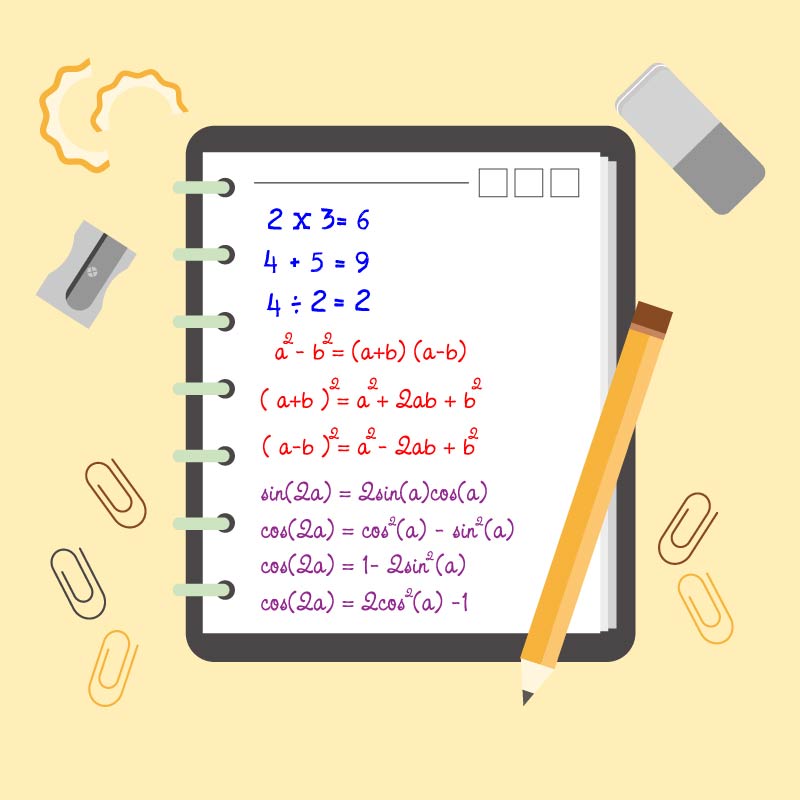 2 x 3= 6
4 + 5 = 9
4 ÷ 2 = 2
a²- b²= (a+b) (a-b)
( a+b )²= a²+ 2ab + b²
( a-b )²= a²- 2ab + b²
sin(2a) = 2sin(a)cos(a)
cos(2a) = cos²(a) - sin²(a)
cos(2a) = 1- 2sin²(a)
cos(2a) = 2cos²(a) -1